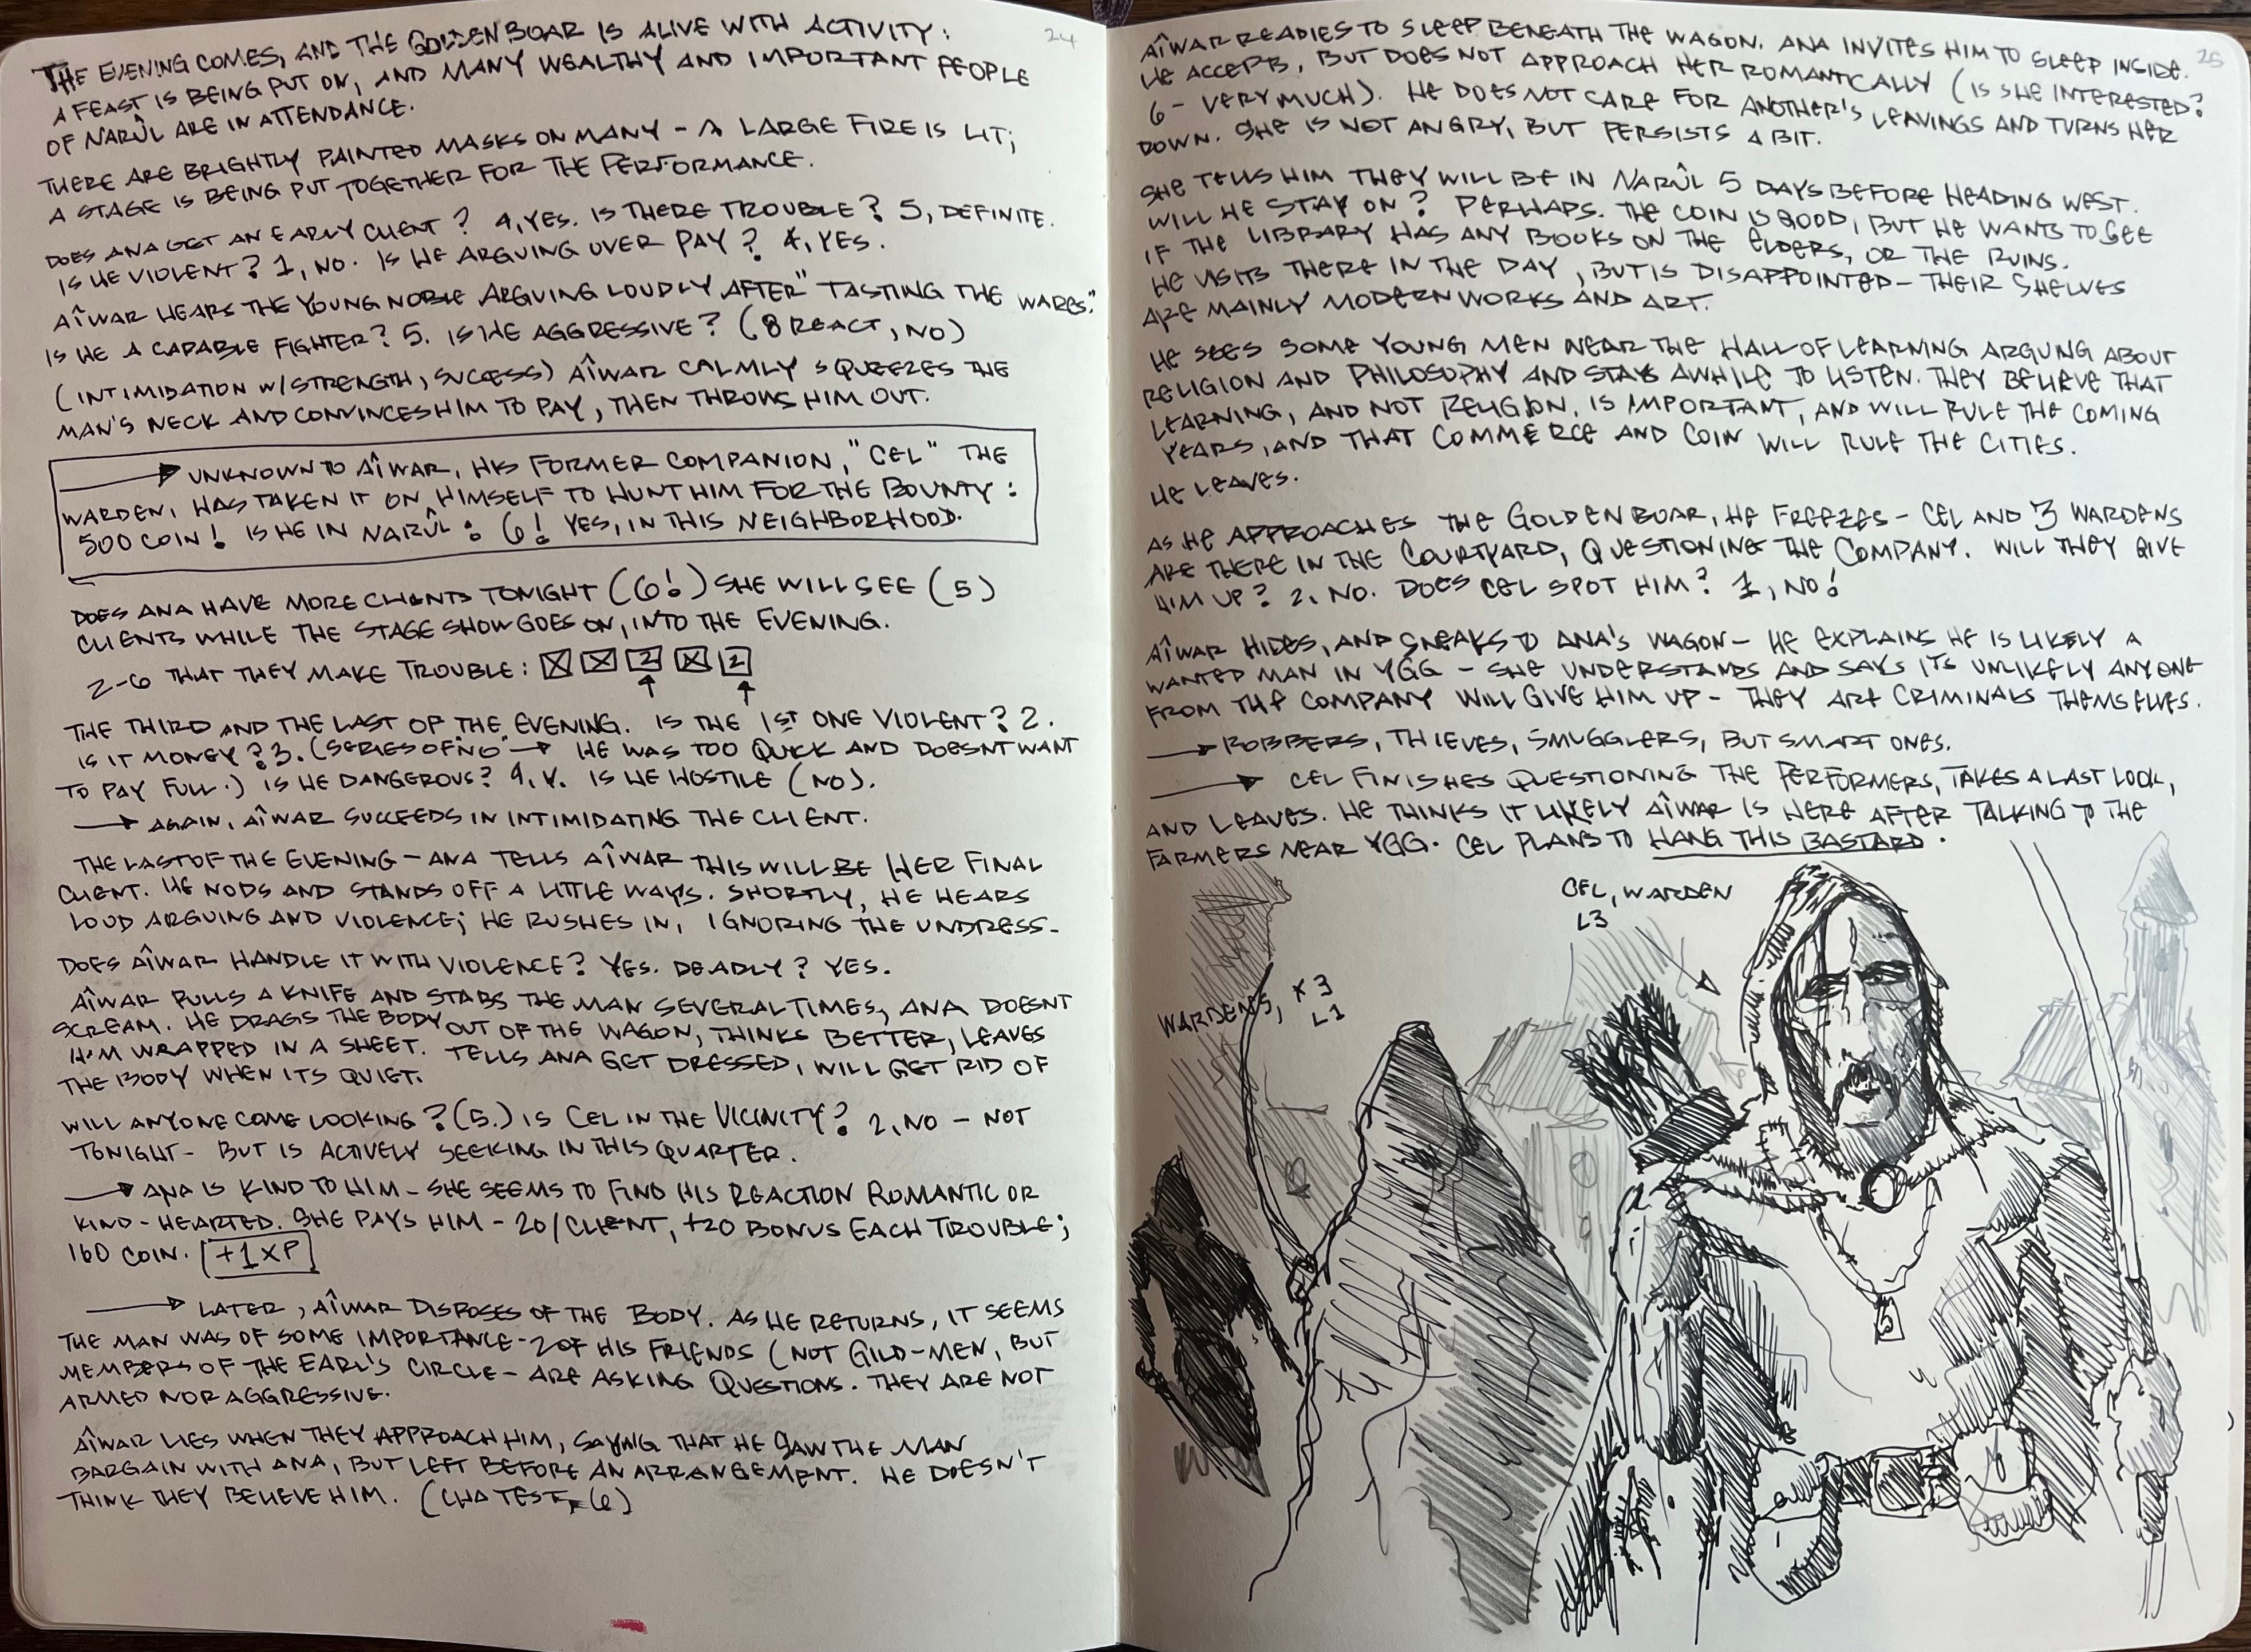 24
THE EVENING COMES, AND THE GOLDEN BOAR IS ALIVE WITH ACTIVITY:
A FEAST IS BEING PUT ON, AND MANY WEALTHY AND IMPORTANT PEOPLE
OF NARÛL ARE IN ATTENDANCE.
THERE ARE BRIGHTLY PAINTED MASKS ON MANY - A LARGE FIRE IS LIT;
A STAGE IS BEING PUT TOGETHER FOR THE PERFORMANCE.
DOES ANA GET AN EARLY CLIENT? 4, YES. IS THERE TROUBLE? 5, DEFINITE.
IS HE VIOLENT? 1, NO. IS HE ARGUING OVER PAY? 4, YES.
AÎWAR HEARS THE YOUNG NOBLE ARGUING LOUDLY AFTER "TASTING THE WARES."
IS HE A CAPABLE FIGHTER? 5. IS HE AGGRESSIVE? (8 REACT, NO)
(INTIMIDATION W/STRENGTH, SUCCESS) AÎWAR CALMLY SQUEEZES THE
MAN'S NECK AND CONVINCES HIM TO PAY, THEN THROWS HIM OUT.
→ UNKNOWN TO AÎWAR, HIS FORMER COMPANION, "CEL" THE
WARDEN, HAS TAKEN IT ON HIMSELF TO HUNT HIM FOR THE BOUNTY:
500 COIN! IS HE IN NARÛL: 6! YES, IN THIS NEIGHBORHOOD.
DOES ANA HAVE MORE CLIENTS TONIGHT (6!) SHE WILL SEE (5)
CLIENTS WHILE THE STAGE SHOW GOES ON, INTO THE EVENING.
2-6 THAT THEY MAKE TROUBLE: X X 2 X 2
THE THIRD AND THE LAST OF THE EVENING. IS THE 1ST ONE VIOLENT? 2.
IS IT MONEY? 3. (SERIES OF "NO" → HE WAS TOO QUICK AND DOESNT WANT
TO PAY FULL.) IS HE DANGEROUS? 4, Y. IS HE HOSTILE (NO).
→ AGAIN, AÎWAR SUCCEEDS IN INTIMIDATING THE CLIENT.
THE LAST OF THE EVENING - ANA TELLS AÎWAR THIS WILL BE HER FINAL
CLIENT. HE NODS AND STANDS OFF A LITTLE WAYS. SHORTLY, HE HEARS
LOUD ARGUING AND VIOLENCE; HE RUSHES IN, IGNORING THE UNDRESS-
DOES AÎWAR HANDLE IT WITH VIOLENCE? YES. DEADLY? YES.
AÎWAR PULLS A KNIFE AND STABS THE MAN SEVERAL TIMES, ANA DOESNT
SCREAM. HE DRAGS THE BODY OUT OF THE WAGON, THINKS BETTER, LEAVES
HIM WRAPPED IN A SHEET. TELLS ANA GET DRESSED, WILL GET RID OF
THE BODY WHEN ITS QUIET.
WILL ANYONE COME LOOKING? (5.) IS CEL IN THE VICINITY? 2, NO - NOT
TONIGHT - BUT IS ACTIVELY SEEKING IN THIS QUARTER.
→ ANA IS KIND TO HIM - SHE SEEMS TO FIND HIS REACTION ROMANTIC OR
KIND-HEARTED. SHE PAYS HIM - 20/CLIENT, +20 BONUS EACH TROUBLE;
160 COIN. +1XP
→ LATER, AÎWAR DISPOSES OF THE BODY. AS HE RETURNS, IT SEEMS
THE MAN WAS OF SOME IMPORTANCE - 2 OF HIS FRIENDS (NOT GILD-MEN, BUT
MEMBERS OF THE EARL'S CIRCLE - ARE ASKING QUESTIONS. THEY ARE NOT
ARMED NOR AGGRESSIVE.
AÎWAR LIES WHEN THEY APPROACH HIM, SAYING THAT HE SAW THE MAN
BARGAIN WITH ANA, BUT LEFT BEFORE AN ARRANGEMENT. HE DOESN'T
THINK THEY BELIEVE HIM. (CHA TEST, 6)
25
AÎWAR READIES TO SLEEP BENEATH THE WAGON. ANA INVITES HIM TO SLEEP INSIDE.
HE ACCEPTS, BUT DOES NOT APPROACH HER ROMANTICALLY (IS SHE INTERESTED?
6 - VERY MUCH). HE DOES NOT CARE FOR ANOTHER'S LEAVINGS AND TURNS HER
DOWN. SHE IS NOT ANGRY, BUT PERSISTS A BIT.
SHE TELLS HIM THEY WILL BE IN NARÛL 5 DAYS BEFORE HEADING WEST.
WILL HE STAY ON? PERHAPS. THE COIN IS GOOD, BUT HE WANTS TO SEE
IF THE LIBRARY HAS ANY BOOKS ON THE ELDERS, OR THE RUINS.
HE VISITS THERE IN THE DAY, BUT IS DISAPPOINTED - THEIR SHELVES
ARE MAINLY MODERN WORKS AND ART.
HE SEES SOME YOUNG MEN NEAR THE HALL OF LEARNING ARGUNG ABOUT
RELIGION AND PHILOSOPHY AND STAYS AWHILE TO LISTEN. THEY BELIEVE THAT
LEARNING, AND NOT RELIGION, IS IMPORTANT, AND WILL RULE THE COMING
YEARS, AND THAT COMMERCE AND COIN WILL RULE THE CITIES.
HE LEAVES.
AS HE APPROACHES THE GOLDEN BOAR, HE FREEZES - CEL AND 3 WARDENS
ARE THERE IN THE COURTYARD, QUESTIONING THE COMPANY. WILL THEY GIVE
HIM UP? 2, NO. DOES CEL SPOT HIM? 1, NO!
AÎWAR HIDES, AND SNEAKS TO ANA'S WAGON - HE EXPLAINS HE IS LIKELY A
WANTED MAN IN YGG - SHE UNDERSTANDS AND SAYS ITS UNLIKELY ANYONE
FROM THE COMPANY WILL GIVE HIM UP - THEY ARE CRIMINALS THEMSELVES.
→ ROBBERS, THIEVES, SMUGGLERS, BUT SMART ONES.
→ CEL FINISHES QUESTIONING THE PERFORMERS, TAKES A LAST LOOK,
AND LEAVES. HE THINKS IT LIKELY AÎWAR IS HERE AFTER TALKING TO THE
FARMERS NEAR YGG. CEL PLANS TO HANG THIS BASTARD.
CEL, WARDEN
L3
WARDENS, X3
L1